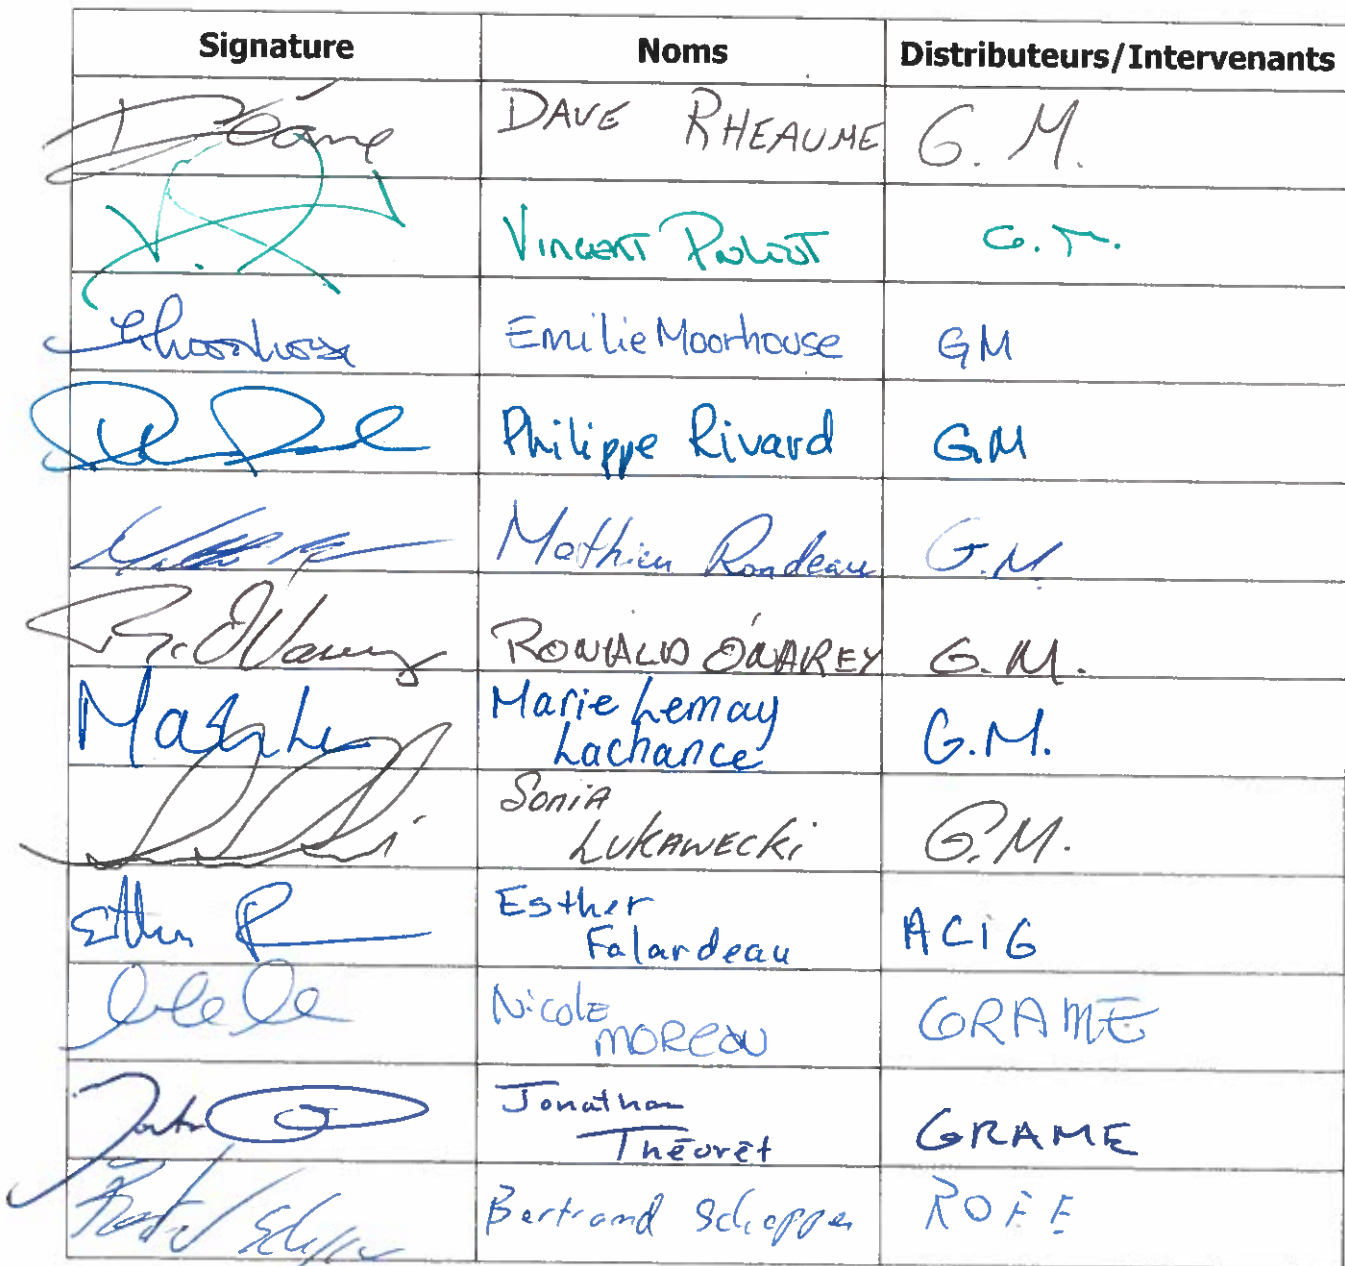 Signature Noms Distributeurs/Intervenants
DAVE RHEAUME G. M.
VINCENT POULIOT G.M.
Emilie Moorhouse GM
Philippe Rivard GM
Mathieu Rondeau G.M
RONALD O'NAREY G.M.
Marie Lemay
Lachance G.M.
Sonia
LUKAWECKi G.M.
Esther
Falardeau ACIG
Nicole
MOREAU GRAME
Jonathan
Théorêt GRAME
Bertrand Schepper ROEE